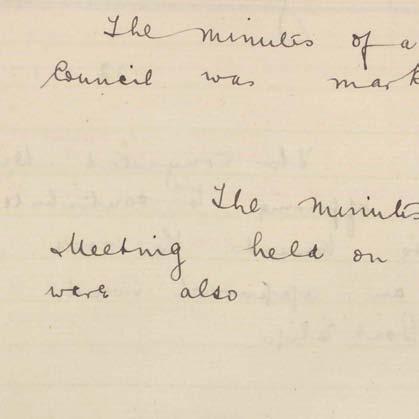 The minutes of a
Council was mark
The minutes
Meeting held on
were also